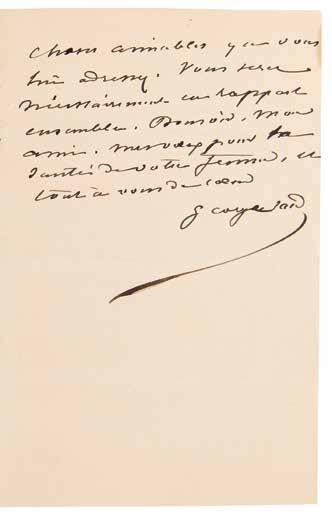 choses aimables que vous
lui adressez. Vous serez
nécessairement en rapport
ensemble. Bonsoir, mon
ami. mes vœux pour la
santé de votre femme, et
tout à vous de cœur
George Sand